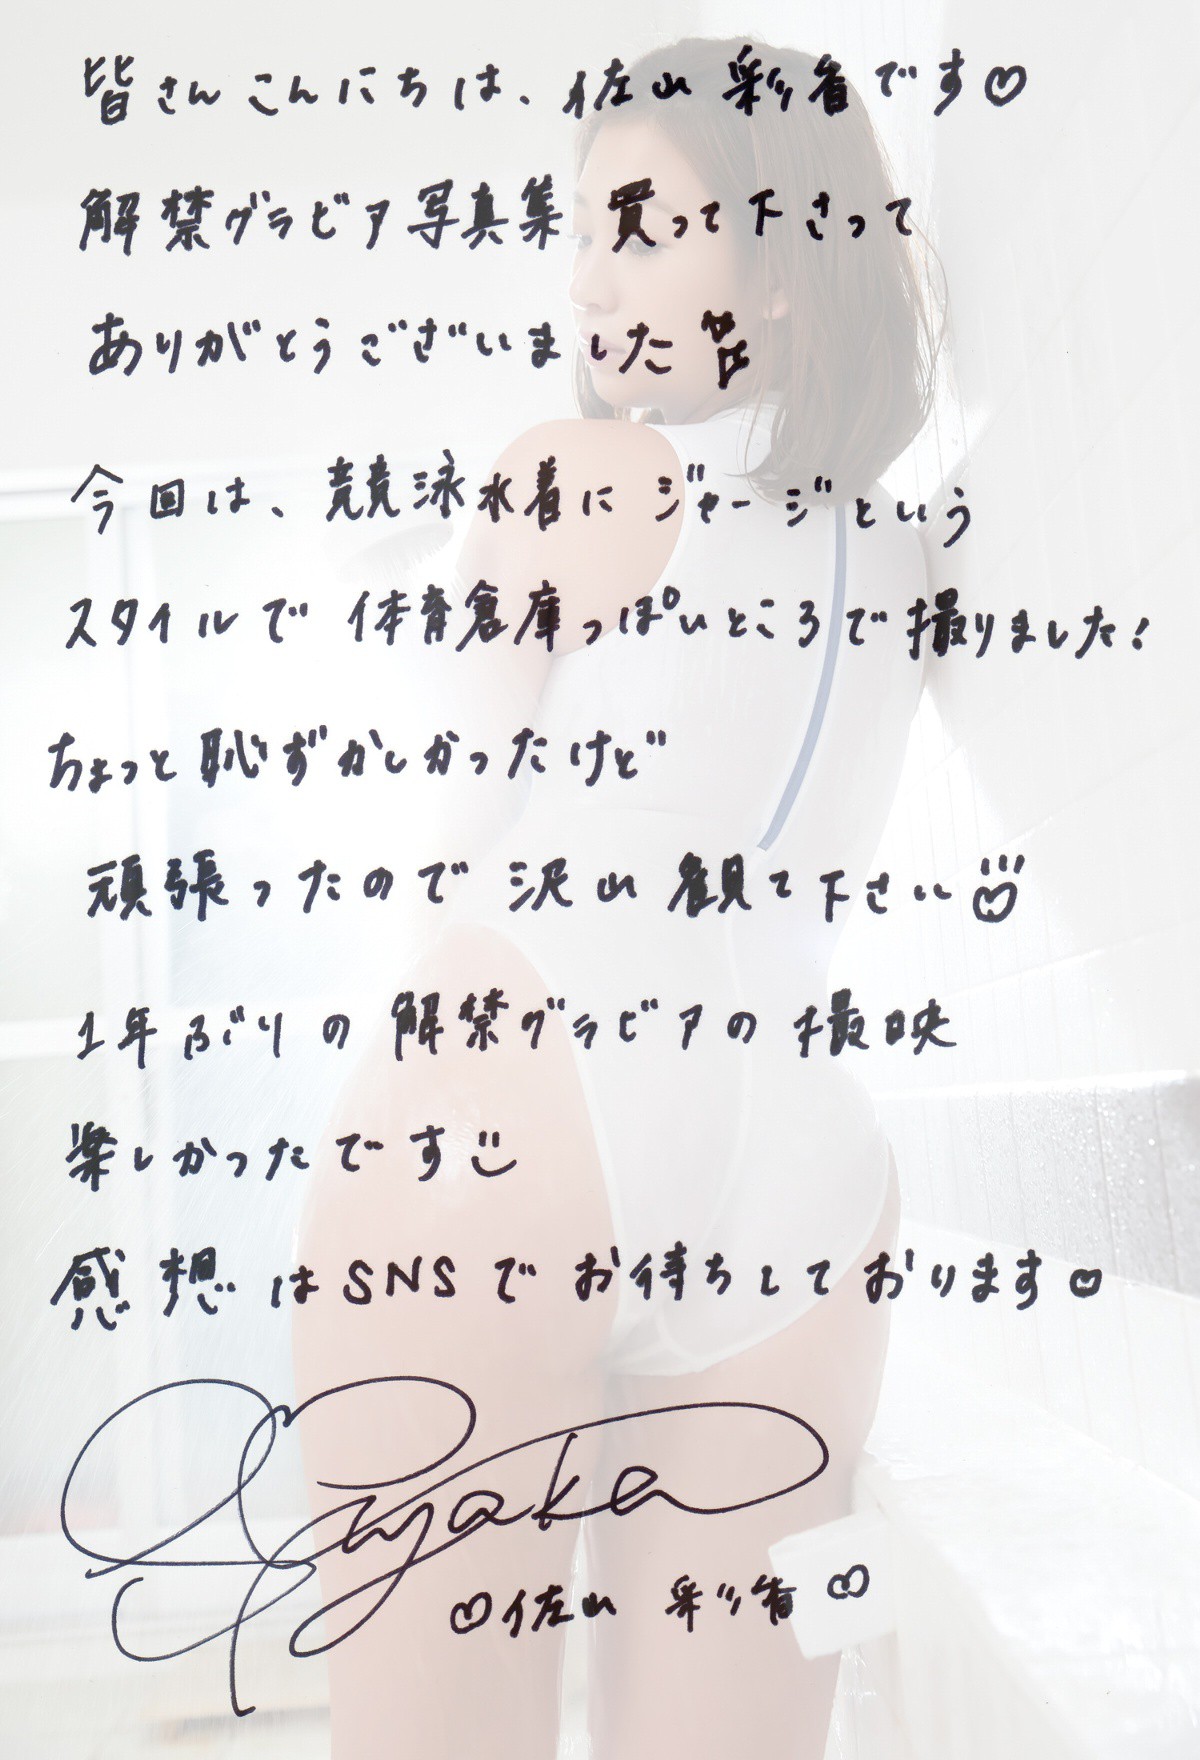 皆さんこんにちは、佐山彩香です♡
解禁グラビア写真集買って下さって
ありがとうございました
今回は、競泳水着にジャージという
スタイルで体育倉庫っぽいところで撮りました!
ちょっと恥ずかしかったけど
頑張ったので沢山観て下さい
1年ぶりの解禁グラビアの撮映
楽しかったです
感想はSNSでお待ちしております♡
Sayaka
♡佐山 彩香♡